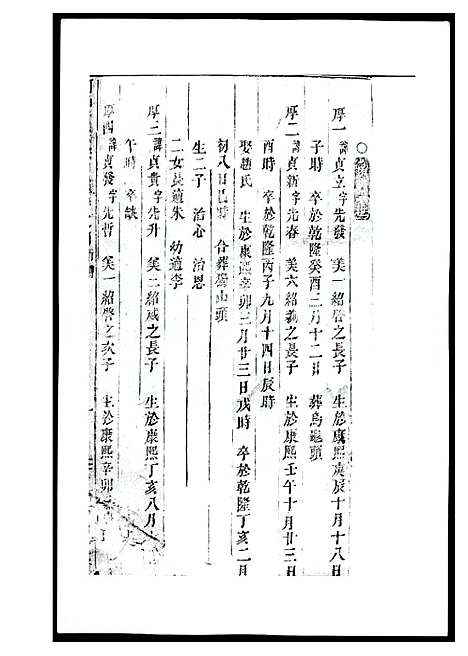 厚一 諱貞立字先發 美一紹啓之長子 生於康熙庚辰十月十八日
子時 卒於乾隆癸酉三月十二日 葬烏龜頭
厚二 諱貞新字先春 美六紹義之長子 生於康熙壬午十月廿三日
酉時 卒於乾隆丙子九月十四日辰時
娶趙氏 生於康熙辛卯三月廿三日戌時 卒於乾隆丁亥二月
初八日巳時 合葬 山頭
生二子 治心 治恩
二女長適朱 幼適李
厚二 諱貞貴字先升 美二紹咸之長子 生於康熙丁亥八月
午時 卒缺
厚四 諱貞發字先哲 美一紹啓之次子 生於康熙辛卯